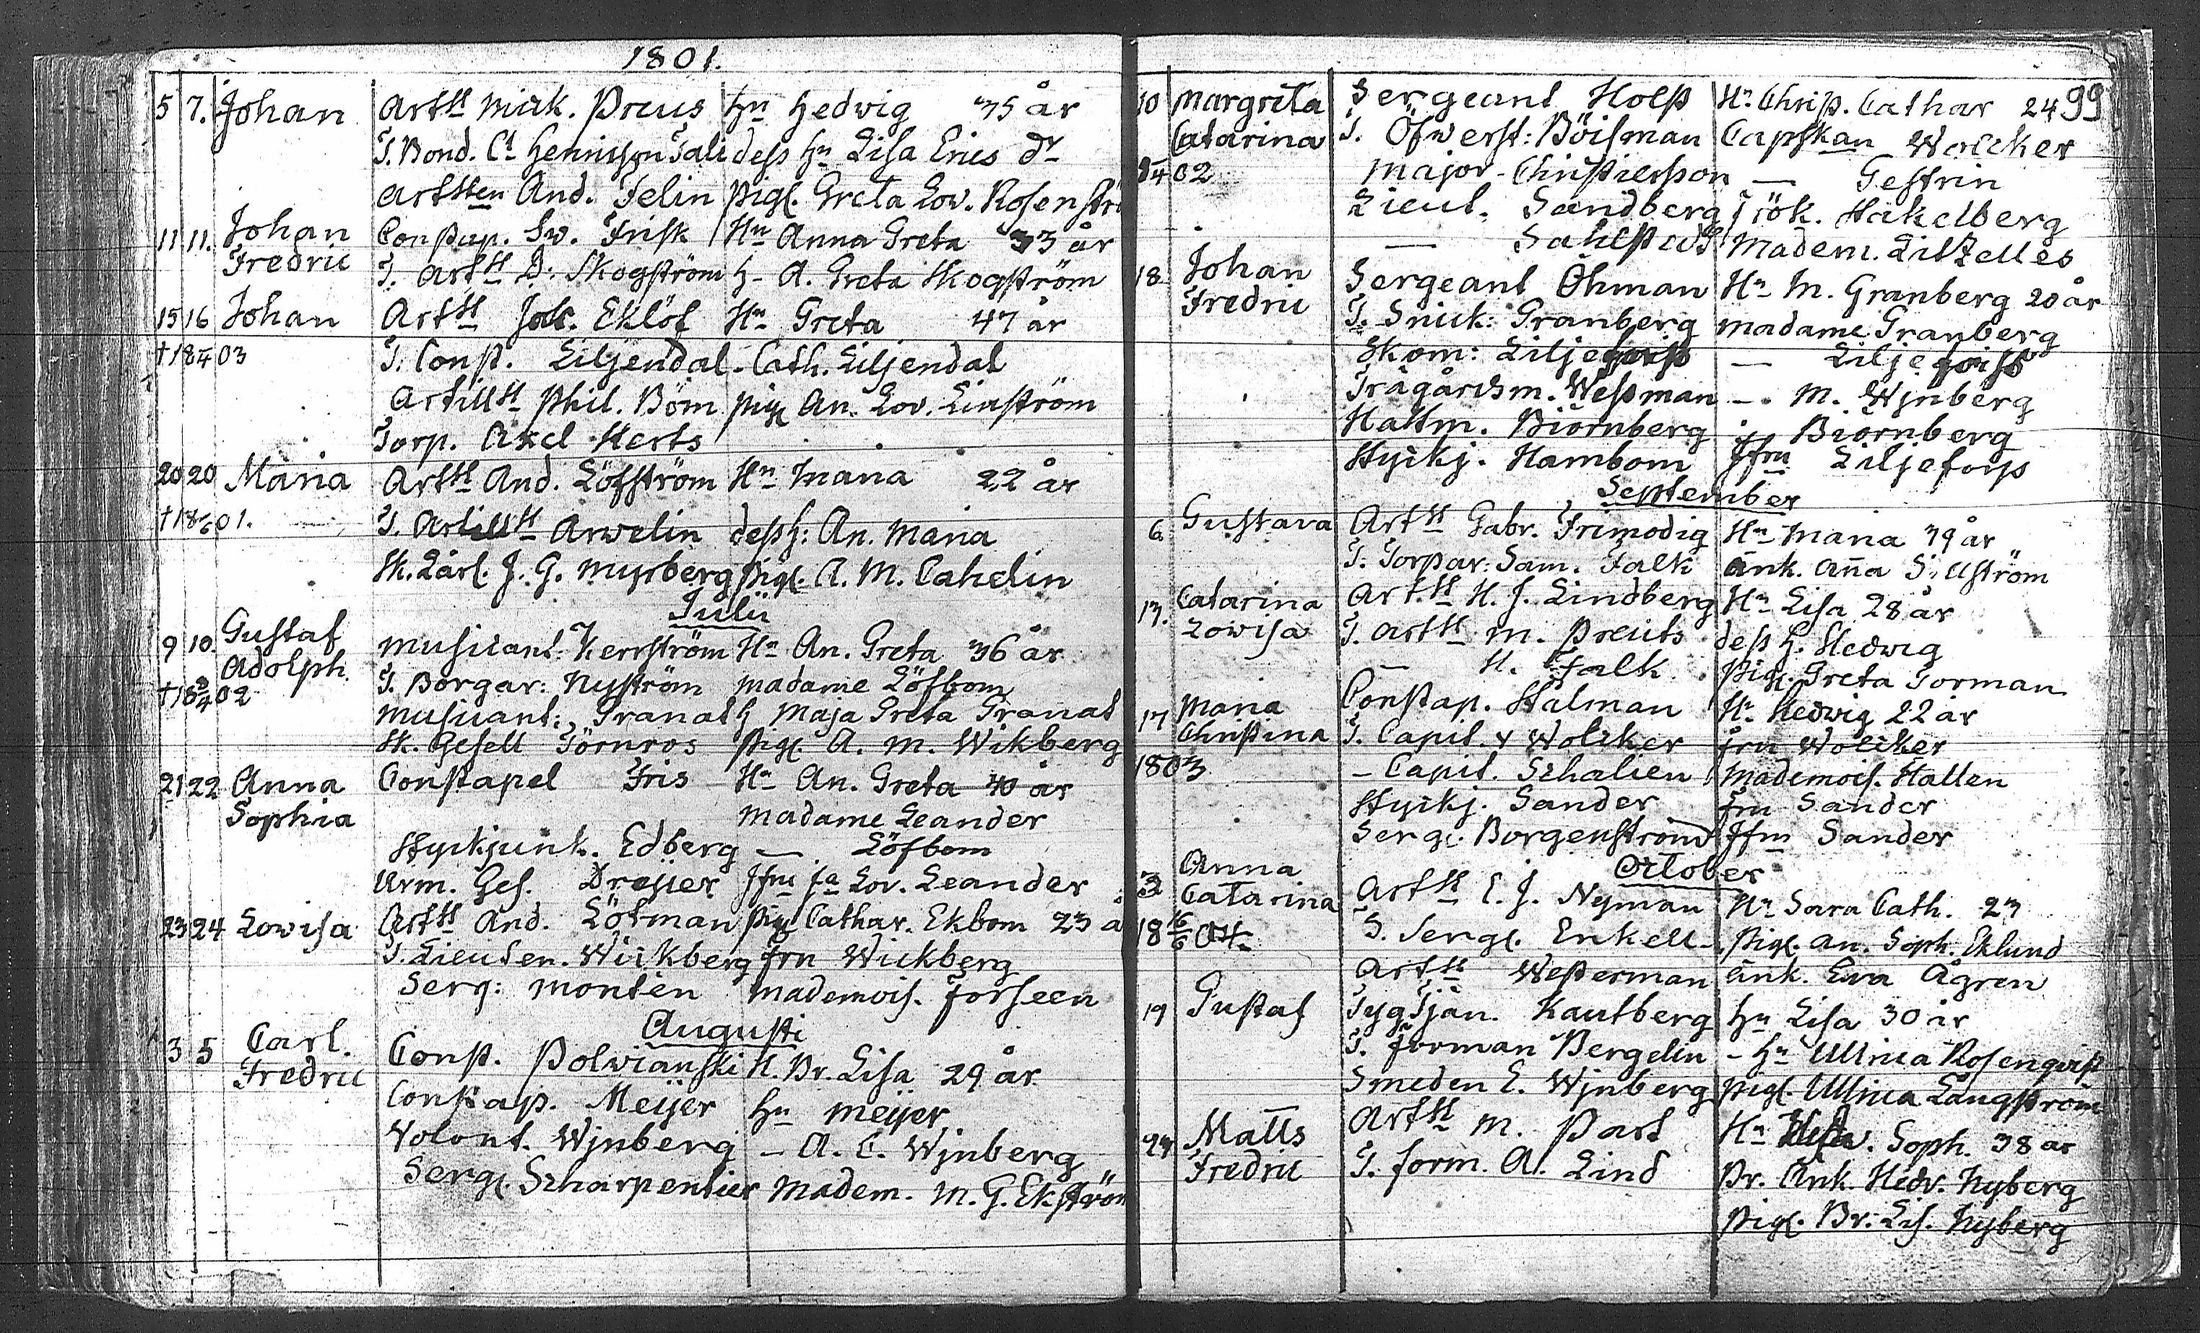 1801.
5 7. Johan Art:st Mick. Preus Hn Hedwig 35 år
T. Bond. Ct Henrisson Tali dess Hn Lisa Erics dr
Art:sten And. Felin pig. Greta Lov. Rosenströ
11 11. Johan Fredric Constap. Sv. Frisk Hn Anna Greta 33 år
T. Art:st D: Skogström H- A. Greta Skogström
15 16 Johan Art:st Joh. Eklöf Hn Greta 47 år
†18 4 03 T. Const. Liljendal - Cath. Liljendal
Artill:st Phil. Böm pig An. Lov. Linström
Torp. Axel Herts
20 20 Maria Art:st And. Löfström Hn Maria 22 år
†18 01. T. Artill:st Arwelin dess h: An. Maria
Sk. Lärl. J. G. Myrberg pig. A. M. Cahelin
Julii
9 10. Gustaf Adolph Musicant: Kerrström Hn An. Greta 36 år
†18 02 T. Borgar: Nyström madame Löfbom
Musicant: Granat H Maja Greta Granat
Sk. Gesell Törnros pig. A. M. Wikberg
21 22 Anna Sophia Constapel Fris Hn An. Greta 40 år
madame Leander
Styckjunk. Edberg — Löfbom
Urm. Ges. Dreijer Jfru Ja Lov. Leander
23 24 Lovisa Art:st And. Löfman pig Cathar. Ekbom 23 å
T. Lieuten. Wickberg fru Wickberg
Serg: Montén Mademois. Forseen
Augusti
3 5 Carl. Fredric Const. Polvianski H. Br. Lisa 29 år
Constap. Meijer Hn Meijer
Volont. Wjnberg - A. C. Wjnberg
Serg. Scharpentier Madem. M. G. Ekström
99
10 Margreta Catarina Sergeant Holst Hn Christ. Cathar 24
T. Öfwerst: Böisman Capskan Wolcker
02 Major - Christiersson — Gestrin
Lieut. Sandberg Frök. Stakelberg
— Sahlstedt Madem. Litzelles
18 Johan Fredric Sergeant Öhman Hn M. Granberg 20 år
T. Snick: Granberg madame Granberg
Skom: Liljeforss — Liljeforss
Trägårdsm. Wessman - M. Wjnberg
Hattm. Biörnberg Biörnberg
Styckj. Hambom Jfru Liljeforss
September
6 Gustava Art:st Gabr. Frimodig Hn Maria 39 år
T. Torpar: Sam. Falk änk. Anna Sillström
13. Catarina Lovisa Art:st H. J. Lindberg Hn Lisa 28 år
T. Art:st M. Preuts dess H. Hedwig
— H. Falk pig. Greta Forman
17 Maria Christina Constap. Stalman Hn Hedwig 22 år
T. Capit. v Wolcker fru Wolcker
1803 - Capit. Schalien Mademois. Hallen
Styckj. Sander fru Sander
Serg: Borgenström Jfru Sander
October
3 Anna Catarina Art:st C. J. Nyman Hn Sara Cath. 23
18 04 T. Serg. Enkell - pig. An. Soph. Eklund
Art:st Westerman änk. Eva Ågren
19 Gustaf Tygtjän. Kautberg Hn Lisa 30 år
T. Forman Bergelin - Hn Ullrica Rosenqvist
Smeden E. Wjnberg pig. Ullrica Långström
24 Matts Fredric Art:st M. Part Hn Soph. 38 år
T. form. A. Lind Br. Änk. Hedv. Nyberg
pig. Br: Lis. Nyberg